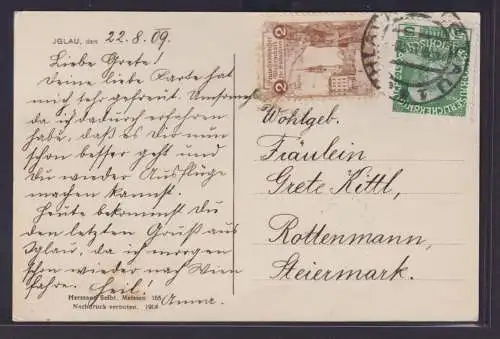 JGLAU, den 22.8.09.
Liebe Grete!
Deine liebe Karte hat
mich sehr gefreut. Umsomehr
da ich dadurch erfahren
habe, daß es Dir nun
schon besser geht und
Du wieder Ausflüge
machen kannst.
Heute bekommst Du
den letzten Gruß aus
Iglau, da ich morgen
schon wieder nach Wien
fahre. Heil!
Anna.
Hermann Seibt, Meissen 155
Nachdruck verboten. 1908
2
2
IGLAU
Wohlgeb.
Fräulein
Grete Kittl,
Rottenmann,
Steiermark.